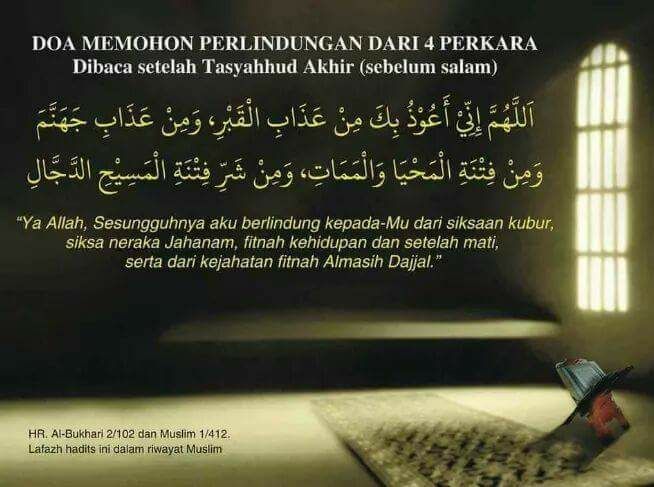 DOA MEMOHON PERLINDUNGAN DARI 4 PERKARA
Dibaca setelah Tasyahhud Akhir (sebelum salam)
اَللَّهُمَّ إِنِّيْ أَعُوْذُ بِكَ مِنْ عَذَابِ الْقَبْرِ، وَمِنْ عَذَابِ جَهَنَّمَ
وَمِنْ فِتْنَةِ الْمَحْيَا وَالْمَمَاتِ، وَمِنْ شَرِّ فِتْنَةِ الْمَسِيْحِ الدَّجَّالِ
“Ya Allah, Sesungguhnya aku berlindung kepada-Mu dari siksaan kubur,
siksa neraka Jahanam, fitnah kehidupan dan setelah mati,
serta dari kejahatan fitnah Almasih Dajjal.”
HR. Al-Bukhari 2/102 dan Muslim 1/412.
Lafazh hadits ini dalam riwayat Muslim